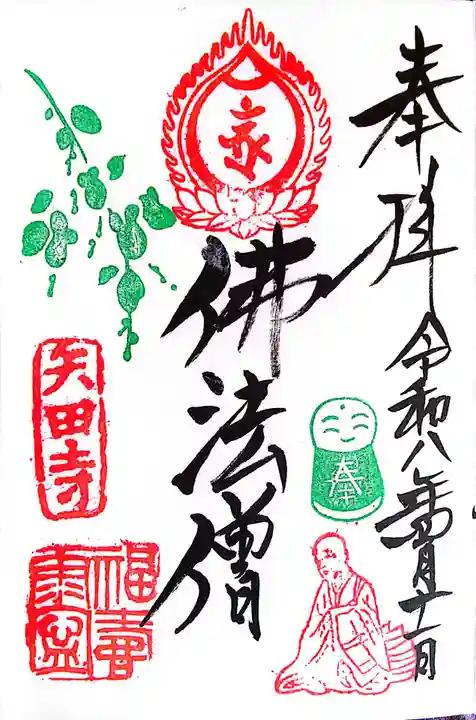 奉拝 令和八年四月十一日
佛法僧
矢田寺
福壽
康寧
奉